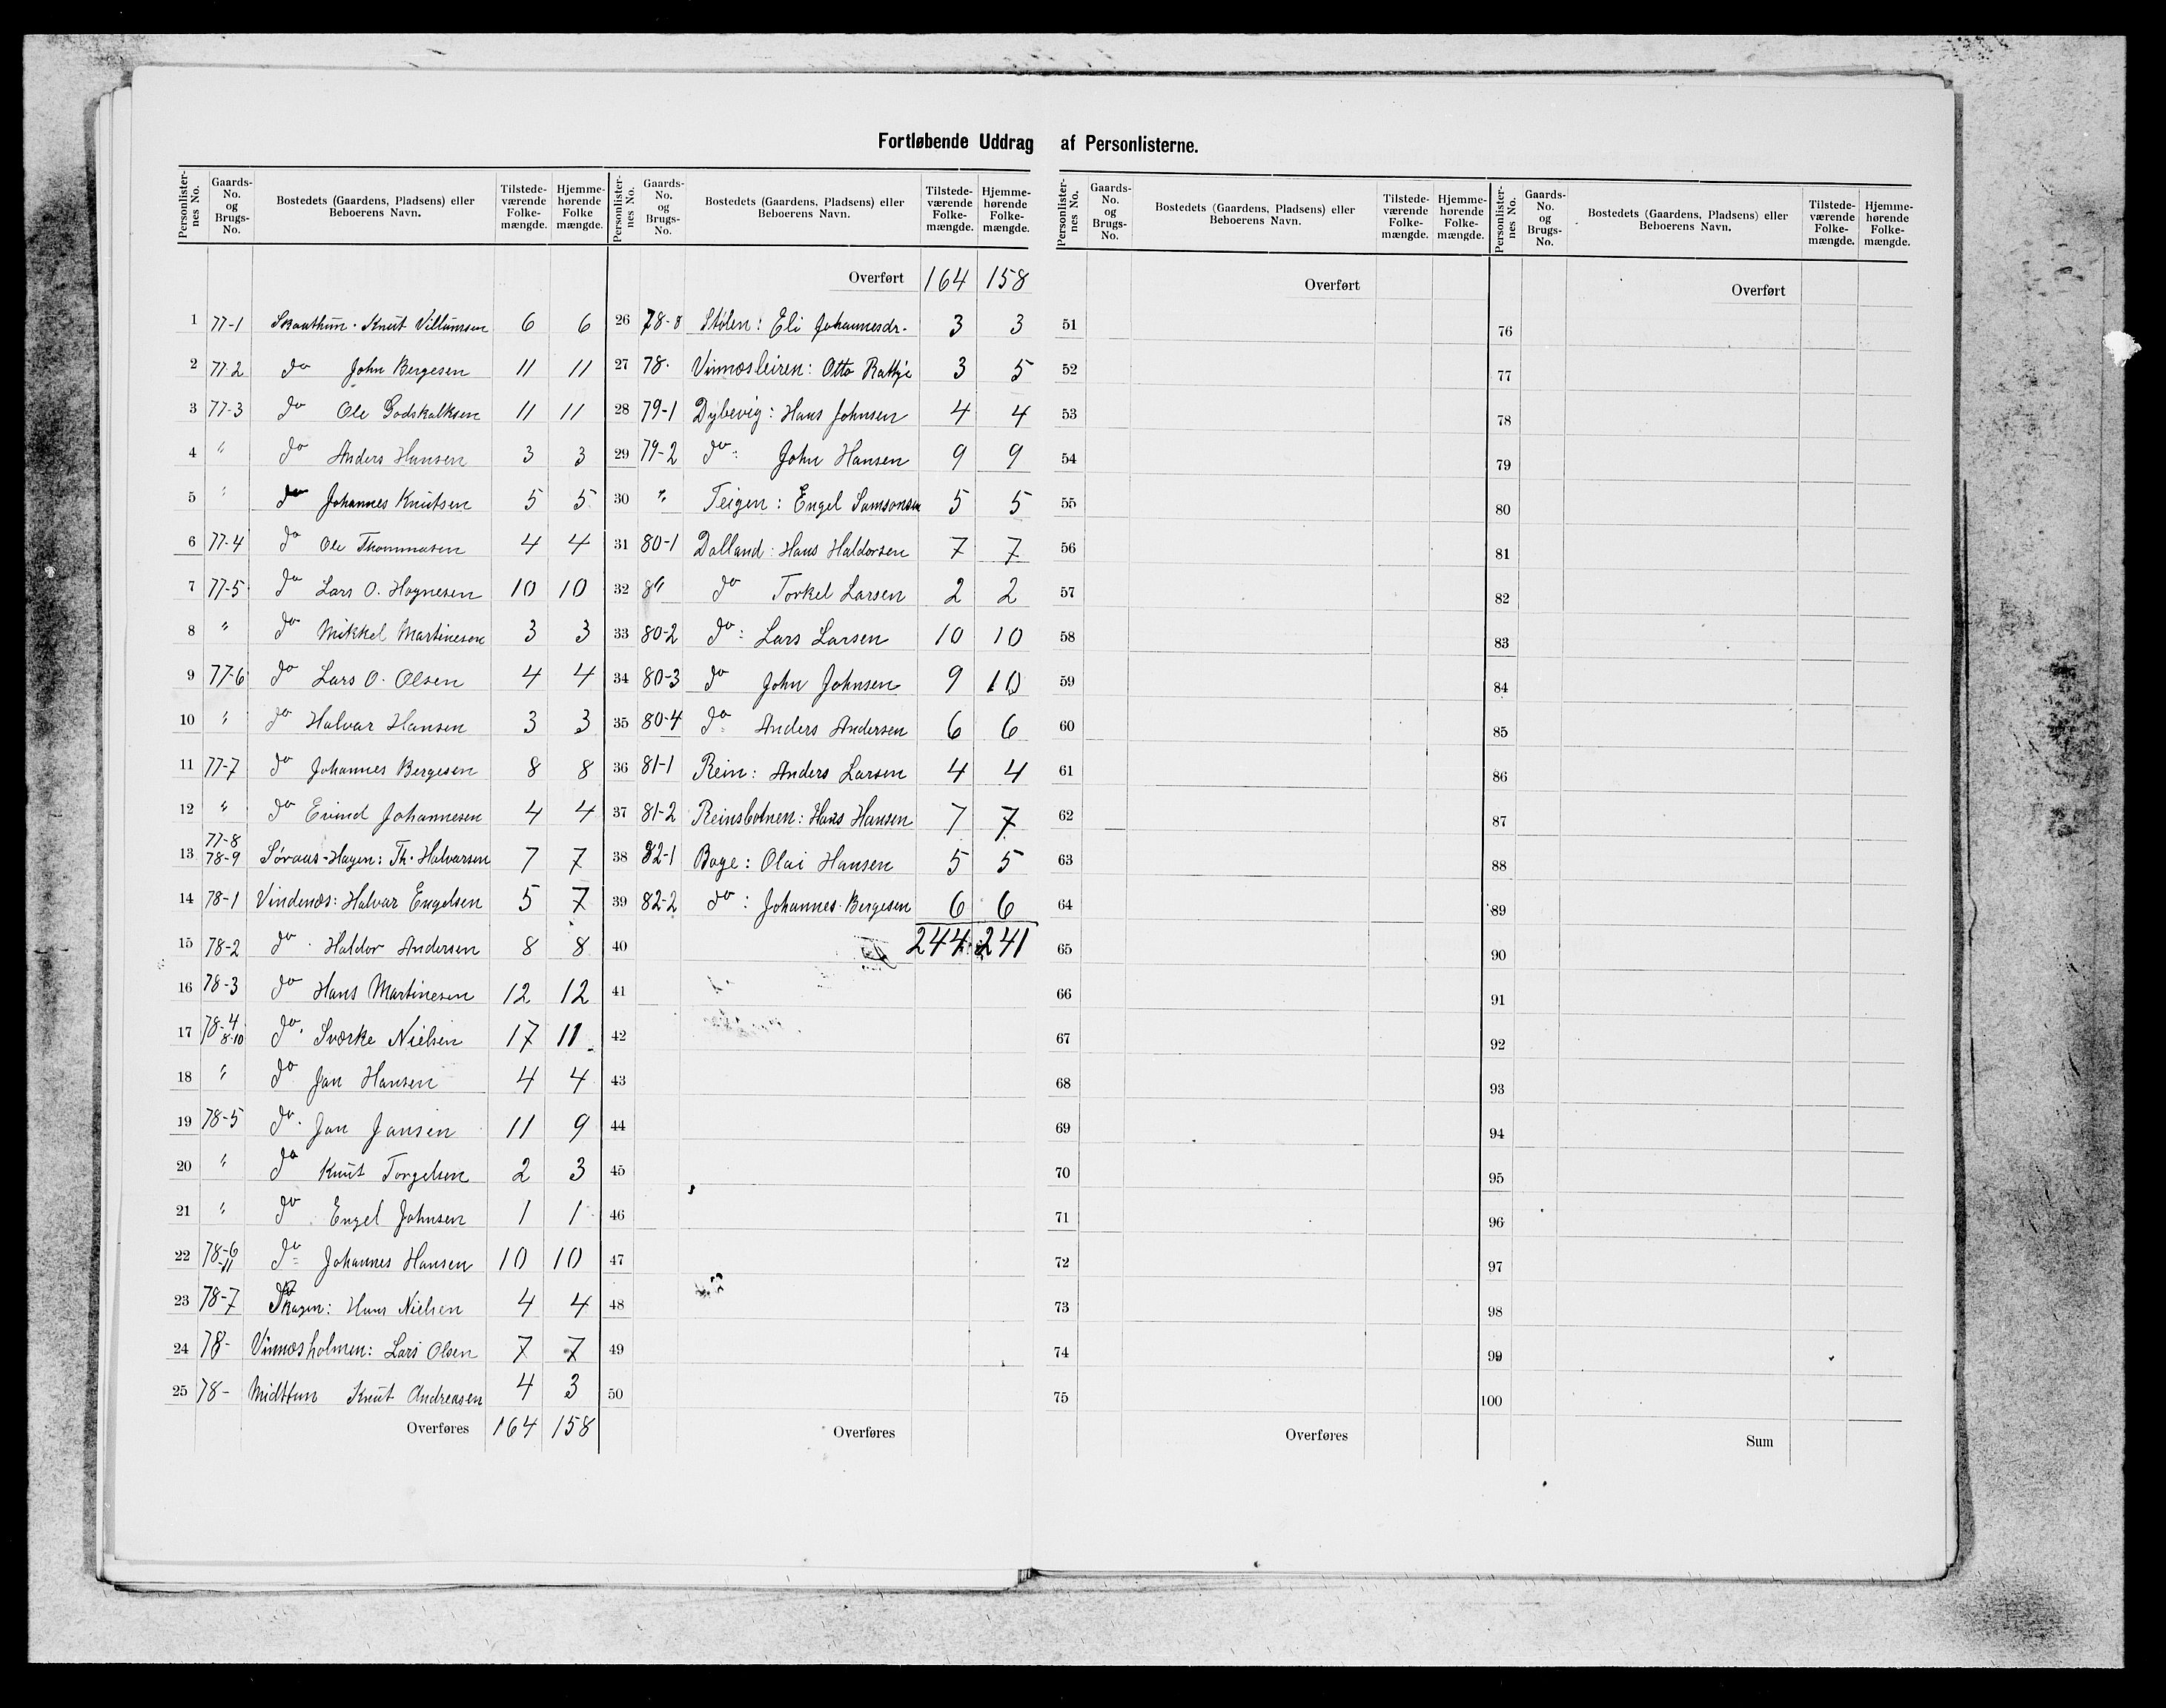 Fortløbende Uddrag af Personlisterne.
Personlister-nes No. Gaards-No. og Brugs-No. Bostedets (Gaardens, Pladsens) eller Beboerens Navn. Tilstede-værende Folke-mængde. Hjemme-hørende Folke mængde.
Personlister-nes No. Gaards-No. og Brugs-No. Bostedets (Gaardens, Pladsens) eller Beboerens Navn. Tilstede-værende Folke-mængde. Hjemme-hørende Folke-mængde.
1 77-1 Skaathun. Knut Villumsen 6 6
2 77-2 do John Bergesen 11 11
3 77-3 do Ole Godskalksen 11 11
4 " do Anders Hansen 3 3
5 " do Johannes Knutsen 5 5
6 77-4 do Ole Thommasen 4 4
7 77-5 do Lars O. Hagnesen 10 10
8 " do Mikkel Martinesen 3 3
9 77-6 do Lars O. Olsen 4 4
10 " do Halvar Hansen 3 3
11 77-7 do Johannes Bergesen 8 8
12 " do Eivind Johannesen 4 4
13 77-8 78-9 Søraas-Hagen: Th. Halvarsen 7 7
14 78-1 Vindenæs: Halvar Engelsen 5 7
15 78-2 do Haldor Andersen 8 8
16 78-3 do Hans Martinesen 12 12
17 78-4 8-10 do. Sværke Nielsen 17 11
18 " do Jan Hansen 4 4
19 78-5 do. Jan Jansen 11 9
20 " do Knut Torgelsen 2 3
21 " do Engel Johnsen 1 1
22 78-6 -11 do Johannes Hansen 10 10
23 78-7 Skagen: Hans Nielsen 4 4
24 78- Vinnæsholmen: Lars Olsen 7 7
25 78- Midttun Knut Andreasen 4 3
Overføres 164 158
Overført 164 158
26 78-8 Stølen: Eli Johannesdr. 3 3
27 78. Vinnæsleiren: Otto Rattje 3 5
28 79-1 Dybevig: Hans Johnsen 4 4
29 79-2 do: John Hansen 9 9
30 " Teigen: Engel Samsonsen 5 5
31 80-1 Dalland: Hans Haldorsen 7 7
32 8" do Torkel Larsen 2 2
33 80-2 do: Lars Larsen 10 10
34 80-3 do John Johnsen 9 10
35 80-4 do Anders Andersen 6 6
36 81-1 Rein: Anders Larsen 4 4
37 81-2 Reinsbotnen: Hans Hansen 7 7
38 82-1 Boge: Olai Hansen 5 5
39 82-2 do: Johannes Bergesen 6 6
40 244 241
41
42
43
44
45
46
47
48
49
50
Overføres
Personlister-nes No. Gaards-No. og Brugs-No. Bostedets (Gaardens, Pladsens) eller Beboerens Navn. Tilstede-værende Folke-mængde. Hjemme-hørende Folke-mængde.
Overført
51
52
53
54
55
56
57
58
59
60
61
62
63
64
65
66
67
68
69
70
71
72
73
74
75
Overføres
Personlister-nes No. Gaards-No. og Brugs-No. Bostedets (Gaardens, Pladsens) eller Beboerens Navn. Tilstede-værende Folke-mængde. Hjemme-hørende Folke-mængde.
Overført
76
77
78
79
80
81
82
83
84
85
86
87
88
89
90
91
92
93
94
95
96
97
98
99
100
Sum